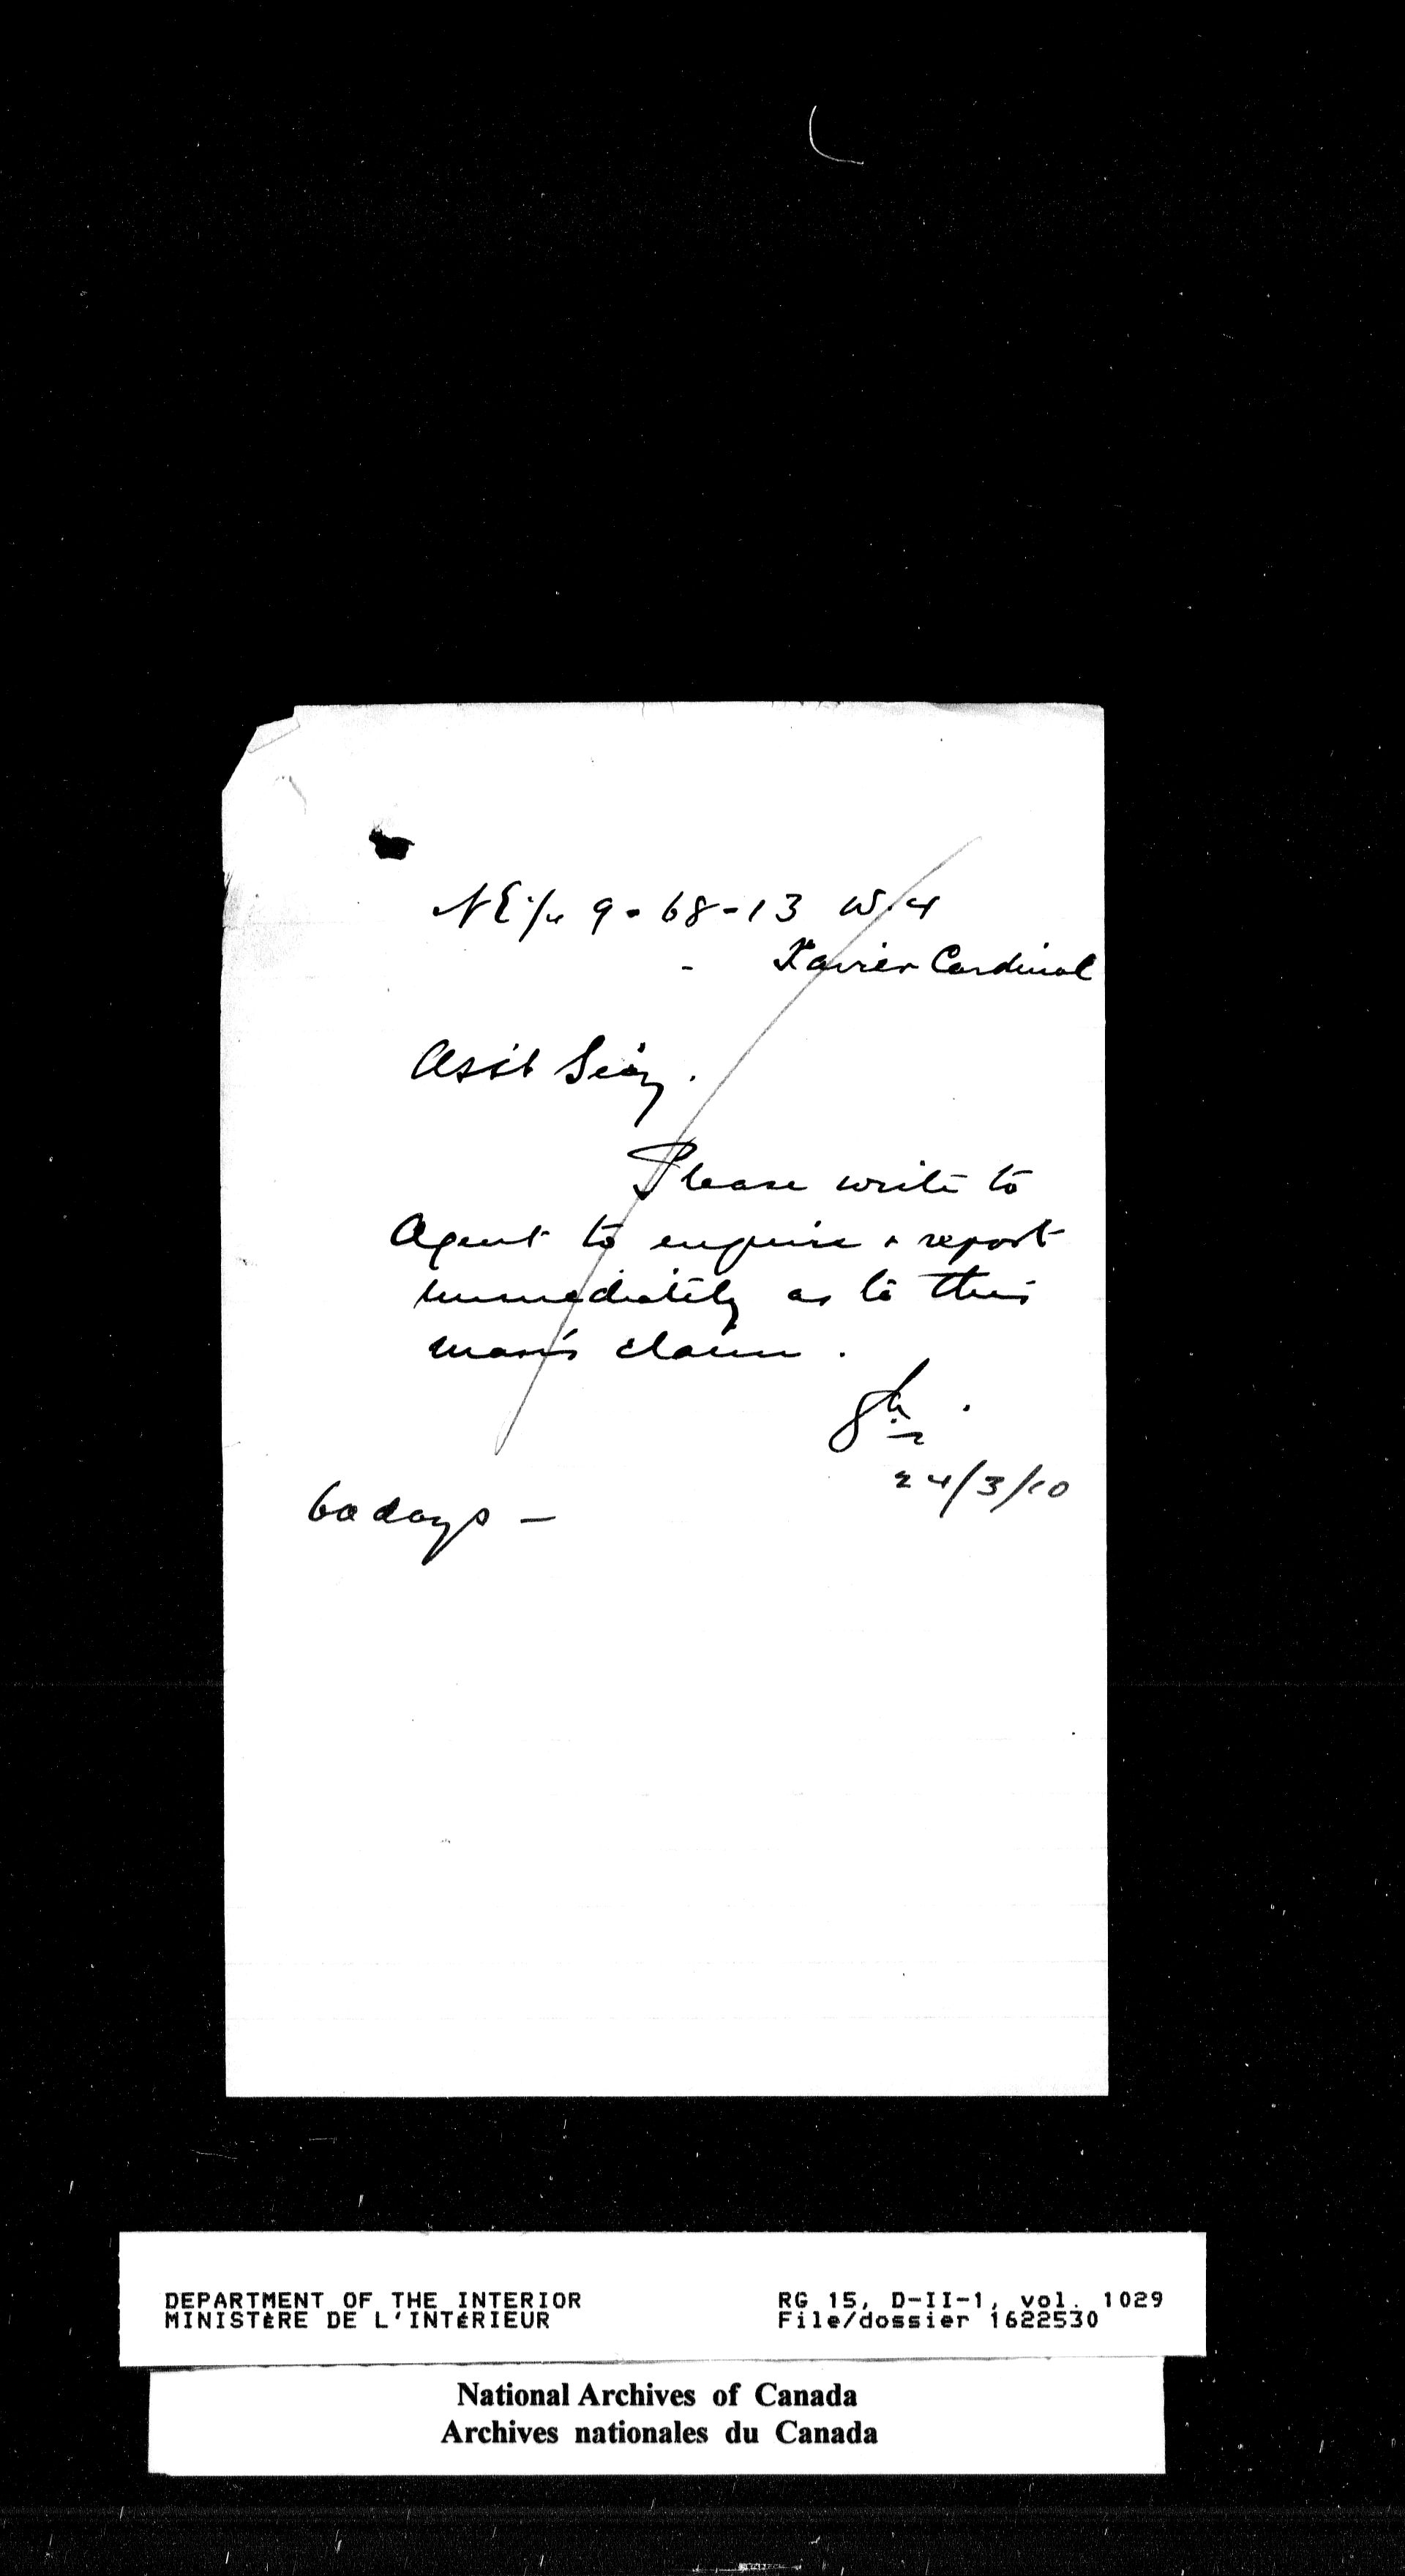 NE 1/4 9-68-13 W.4
- Xavier Cardinal
Asst Secy.
Please write to
Agent to enquire & report
immediately as to this
man's claim.
24/3/10
60 days -
DEPARTMENT OF THE INTERIOR
MINISTÈRE DE L'INTÉRIEUR
RG 15, D-II-1, vol. 1029
File/dossier 1622530
National Archives of Canada
Archives nationales du Canada